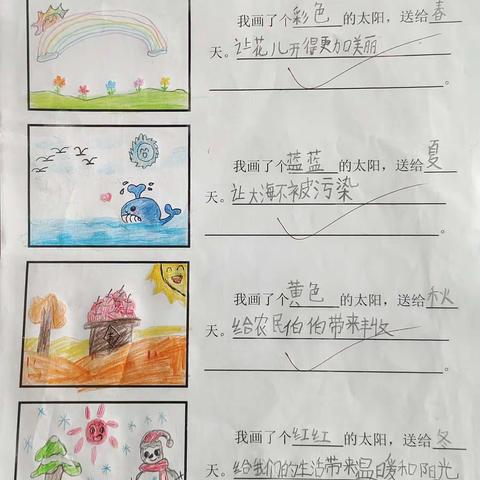 我画了个彩色的太阳，送给春
天。让花儿开得更加美丽
。
我画了个蓝蓝的太阳，送给夏
天。让大海不被污染
。
我画了个黄色的太阳，送给秋
天。给农民伯伯带来丰收
。
我画了个红红的太阳，送给冬
天。给我们的生活带来温暖和阳光